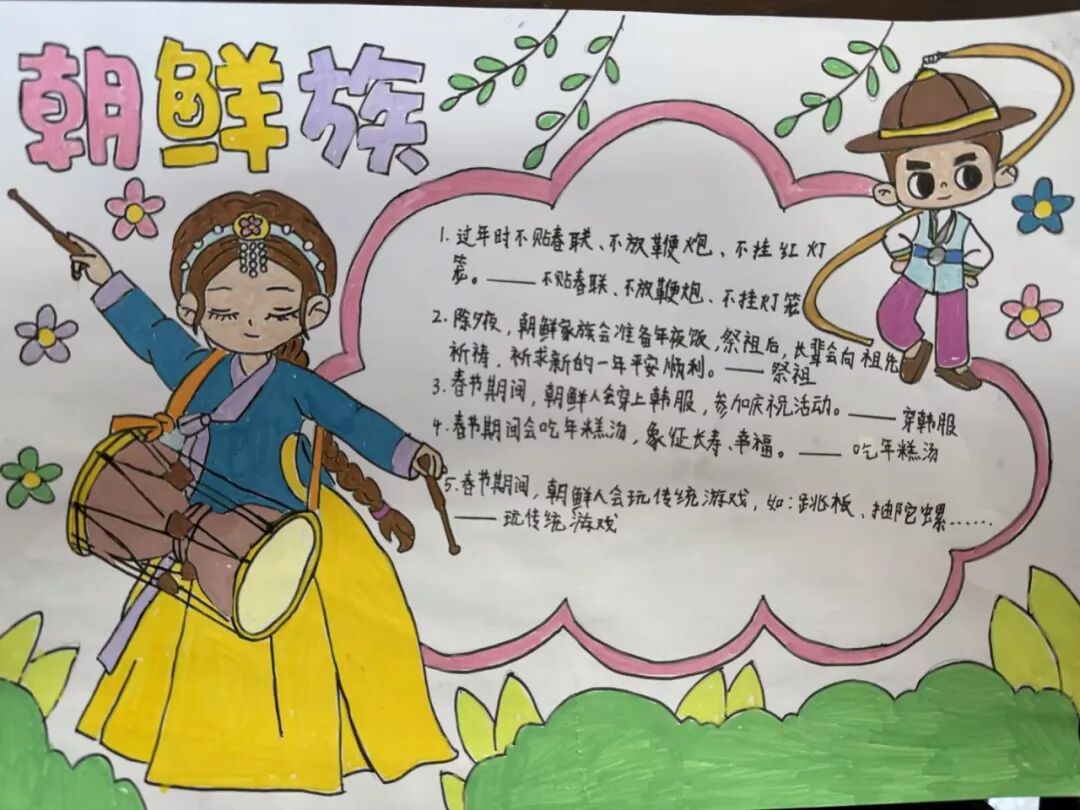 朝鲜族
1. 过年时不贴春联、不放鞭炮、不挂红灯
笼。—— 不贴春联、不放鞭炮、不挂灯笼
2. 除夕夜，朝鲜家族会准备年夜饭，祭祖后，长辈会向祖先
祈祷，祈求新的一年平安顺利。—— 祭祖
3. 春节期间，朝鲜人会穿上韩服，参加庆祝活动。—— 穿韩服
4. 春节期间会吃年糕汤，象征长寿、幸福。—— 吃年糕汤
5. 春节期间，朝鲜人会玩传统游戏，如：跳板、抽陀螺……
—— 玩传统游戏